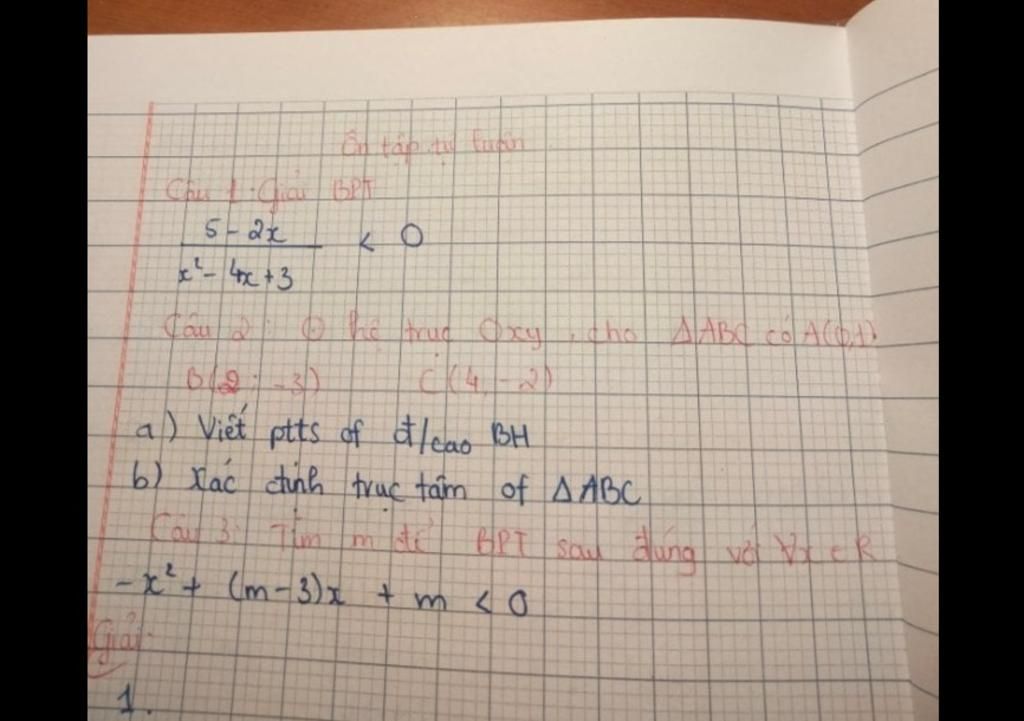 Ôn tập tự luận
Câu 1: Giải BPT
5 - 2x / x² - 4x + 3 < 0
Câu 2: hệ trục Oxy, cho ΔABC có
B(2; -3) C(4; -2)
a) Viết ptts of đ/cao BH
b) Xác định trực tâm of ΔABC
Câu 3: Tìm m để BPT sau đúng với ∀x ∈ R
-x² + (m-3)x + m < 0
Giải
1.